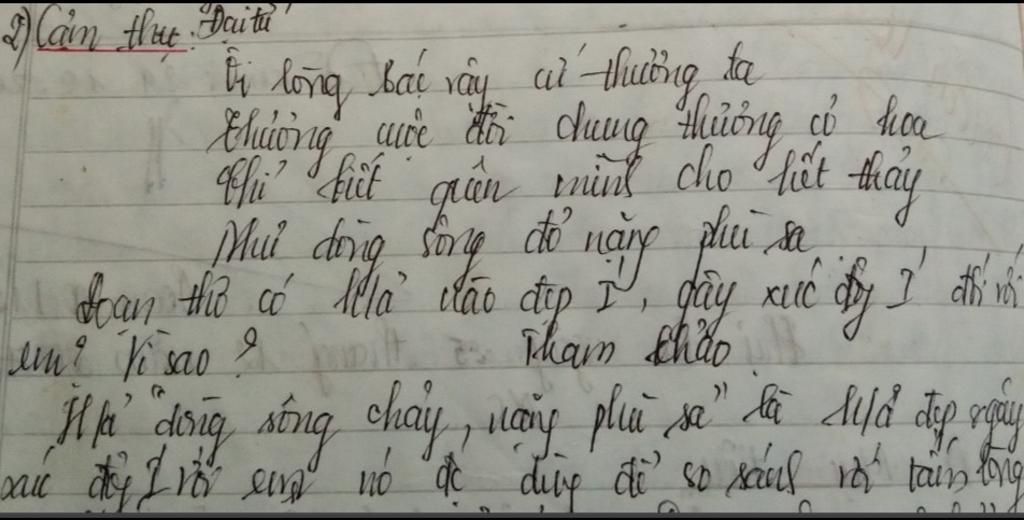 2) Cảm thụ "Đại từ"
Ôi lòng Bác vậy cứ thương ta
Thương cuộc đời chung thương cỏ hoa
Chỉ biết quên mình cho hết thảy
Như dòng sông đỏ nặng phù sa
Đoạn thơ có h/ả nào đẹp I, gây xúc động I đối với
em? Vì sao? Tham khảo
H/ả "dòng sông chảy, nặng phù sa" là h/ả đẹp gây
xúc động I với em nó đc dùng để so sánh với tấm lòng